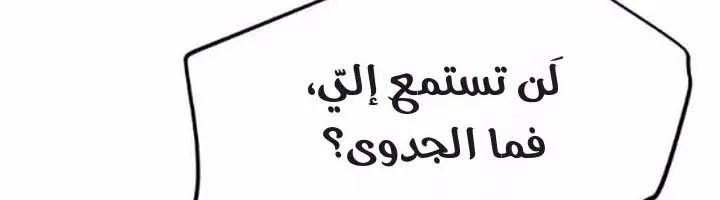 لَن تستمع إليّ،
فما الجدوى؟